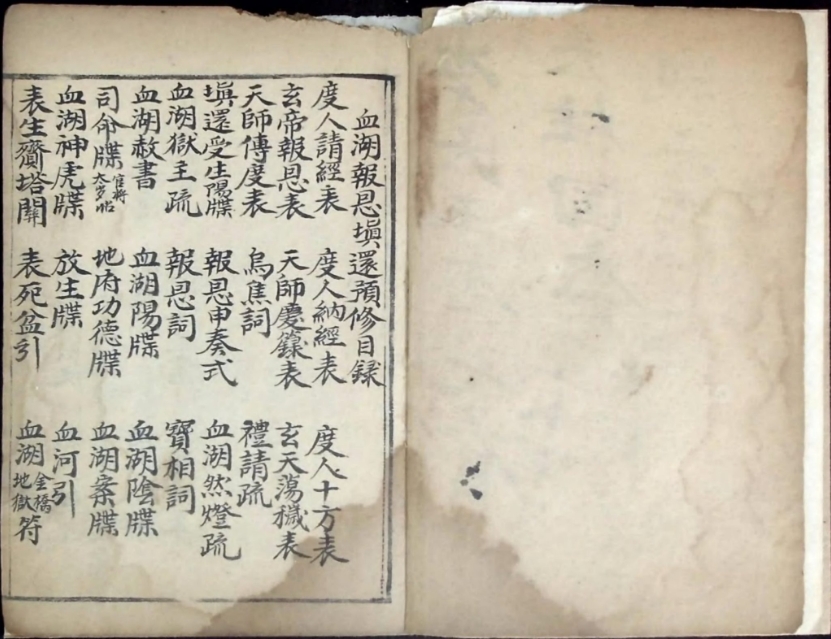 血湖報恩填還預修目錄
度人請經表 度人納經表 度人十方表
玄帝報恩表 天師慶籙表 玄天蕩穢表
天師傳度表 烏焦詞 禮請疏
填還受生陽牒 報恩申奏式 血湖然燈疏
血湖獄主疏 報恩詞 寶相詞
血湖赦書 血湖陽牒 血湖陰牒
司命牒 官將 太歲帖 地府功德牒 血湖案牒
血湖神虎牒 放生牒 血河引
表生齊塔關 表死盆引 血湖 金橋 地獄 符